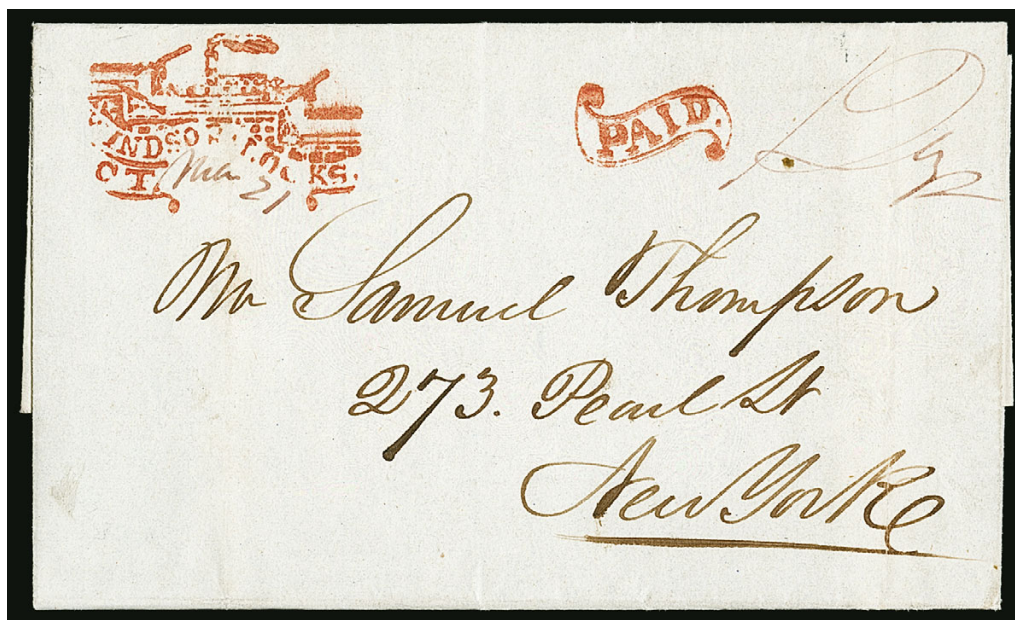 WINDSOR LOCKS.
CT.
Mar 21
PAID.
Mr Samuel Thompson
273. Pearl St
New York